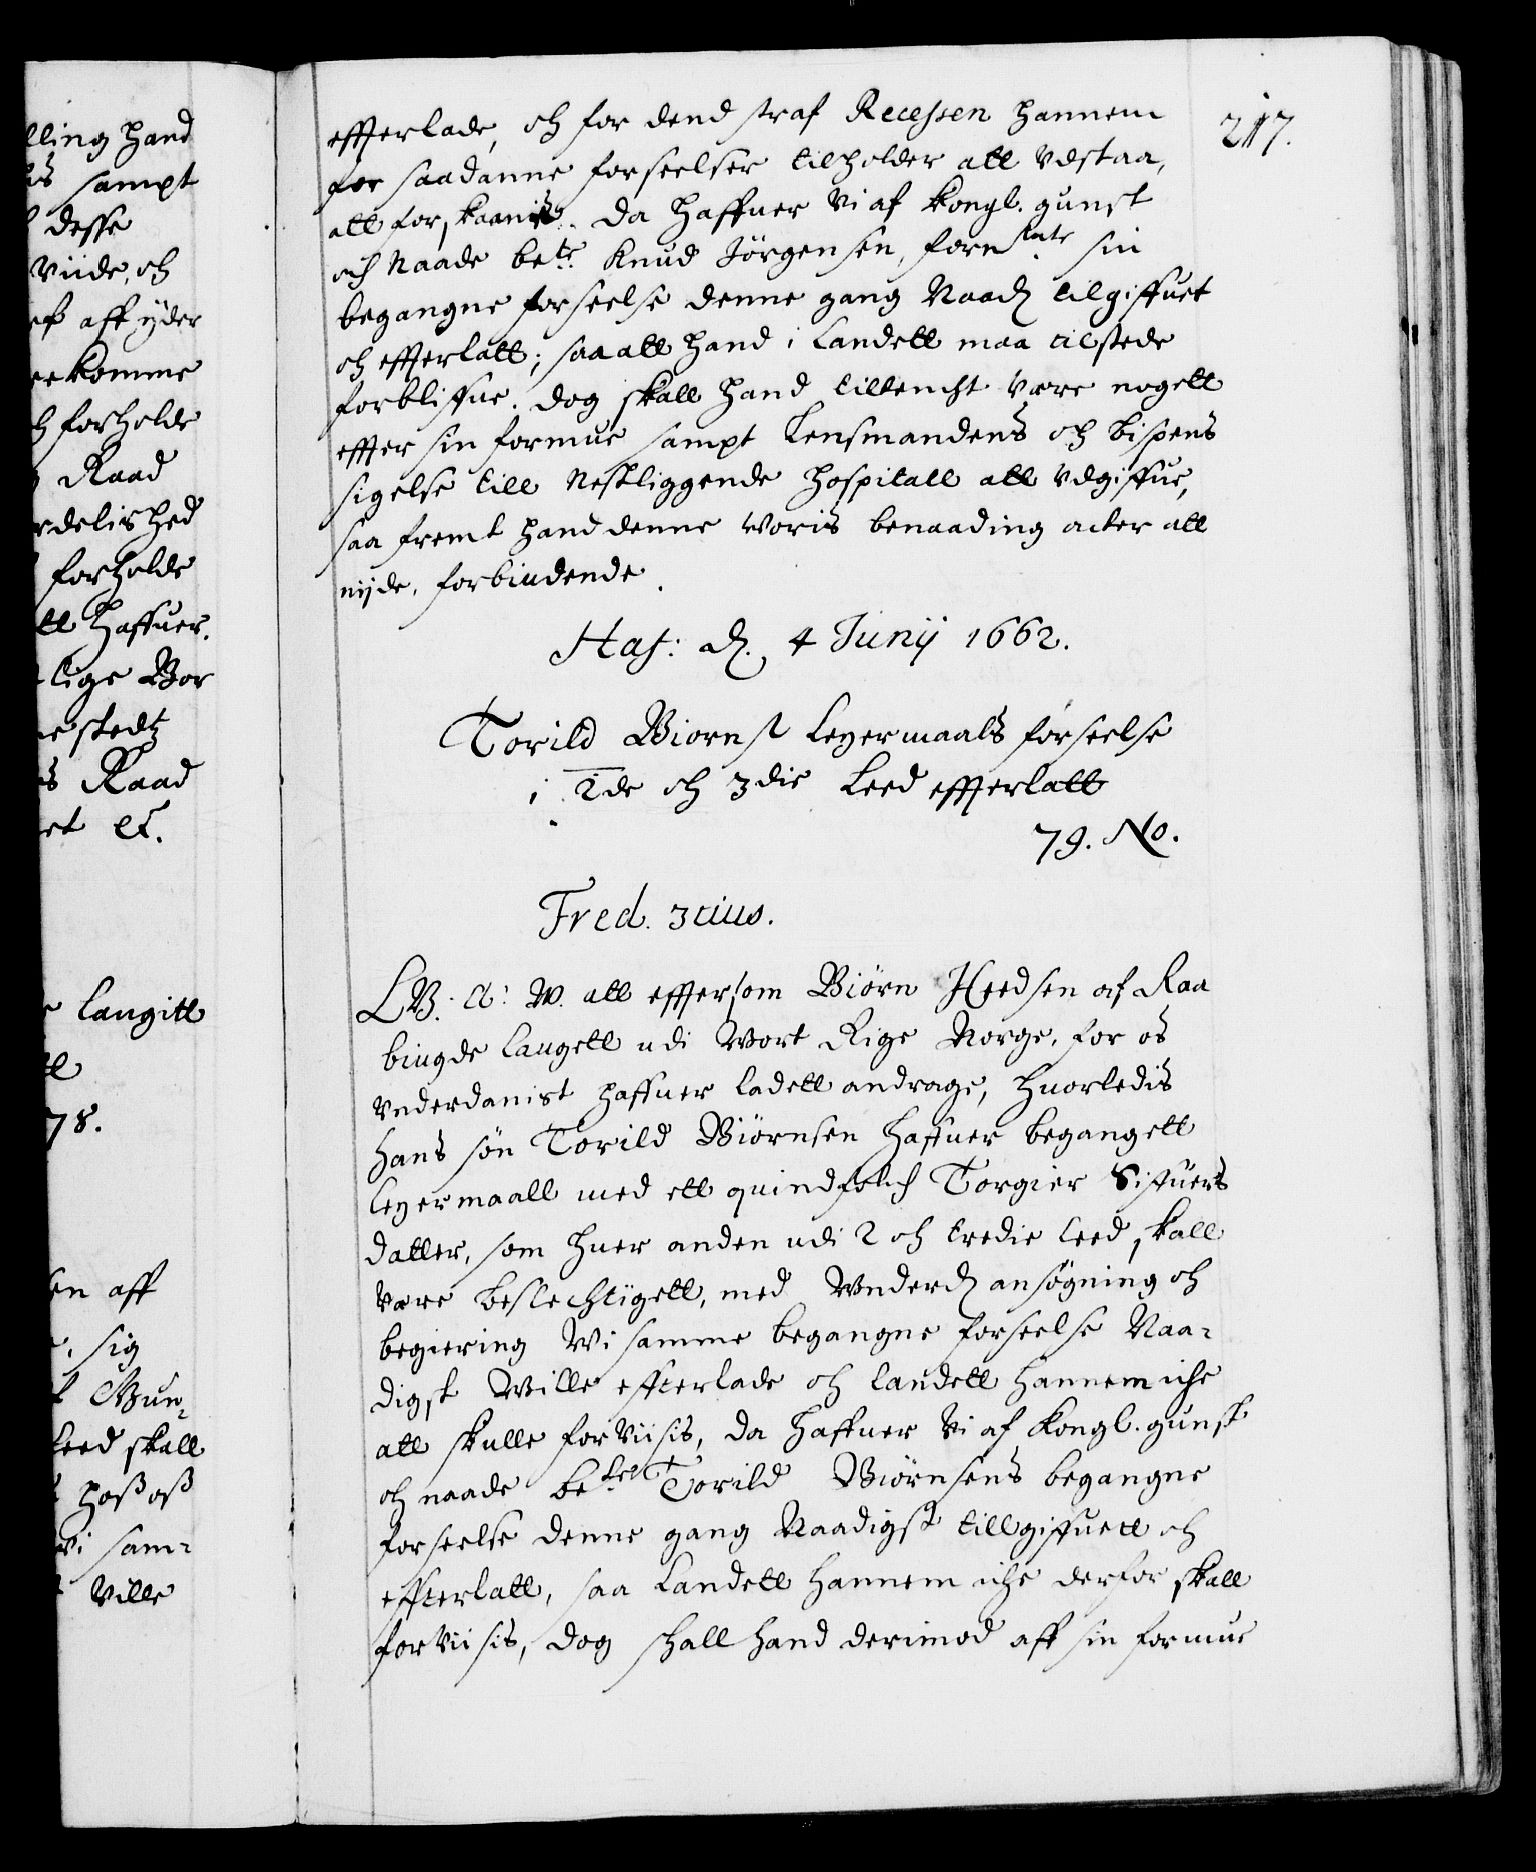 217.
efterlade, och for dend straf Recessen hannem
for saadanne forseelser tilholder att Vdstaa,
att forskaanis. da haffuer Vi af kongl. gunst
och Naade bete. Knud Jörgensen, fornte sin
begangne forseelse denne gang Naad. tilgiffuet
och efterlatt; saa att hand i Landett maa tilstede
forbliffue. dog skall hand tiltencht være nogett
efter sin formue sampt Lensmandens och bispens
sigelse till Nestliggende Hospitall att Vdgiffue,
saa fremt hand denne Woris benaading acter att
nyde, forbiudende.
Haf: d. 4 Junij 1662.
Torild Biornss Leyermaals forseelse
i 2de och 3die Leed efterlatt
79. No.
Fred. 3tius.
LB: A: W. att eftersom Biörn af Raa
biugde Laugett udi Wort Rige Norge, for os
Vnderdanist haffuer ladett andrage, huorledis
hans sön Torild Biörnsen haffuer begangett
leyermaall med ett quindfolch Torgier Sifuers
datter, som huer anden udi 2 och tredie leed skall
være beslechtigett, med Vnderd. ansögning och
begiering Wi samme begangne forseelse Naa-
digst Wille efterlade och landett hannem iche
att skulle forViisis, da haffuer Vi af Kongl. gunst
och naade bete Torild Biörnsens begangne
forseelse denne gang Naadigst tillgiffuett och
efterlatt, saa Landett hannem iche derfor skall
forViisis, dog schall hand derimod aff sin formue
lling hand
is sampt
desse
Viide, och
aff yder
komme
h forholde
Raad
rdelished
forholde
tt haffuer.
lige Bor
stedtz
s Raad
et etc.
Laugitt
tt
78.
en aff
, sig
Gun-
Leed skall
hoß oß
Vi sam-
Ville